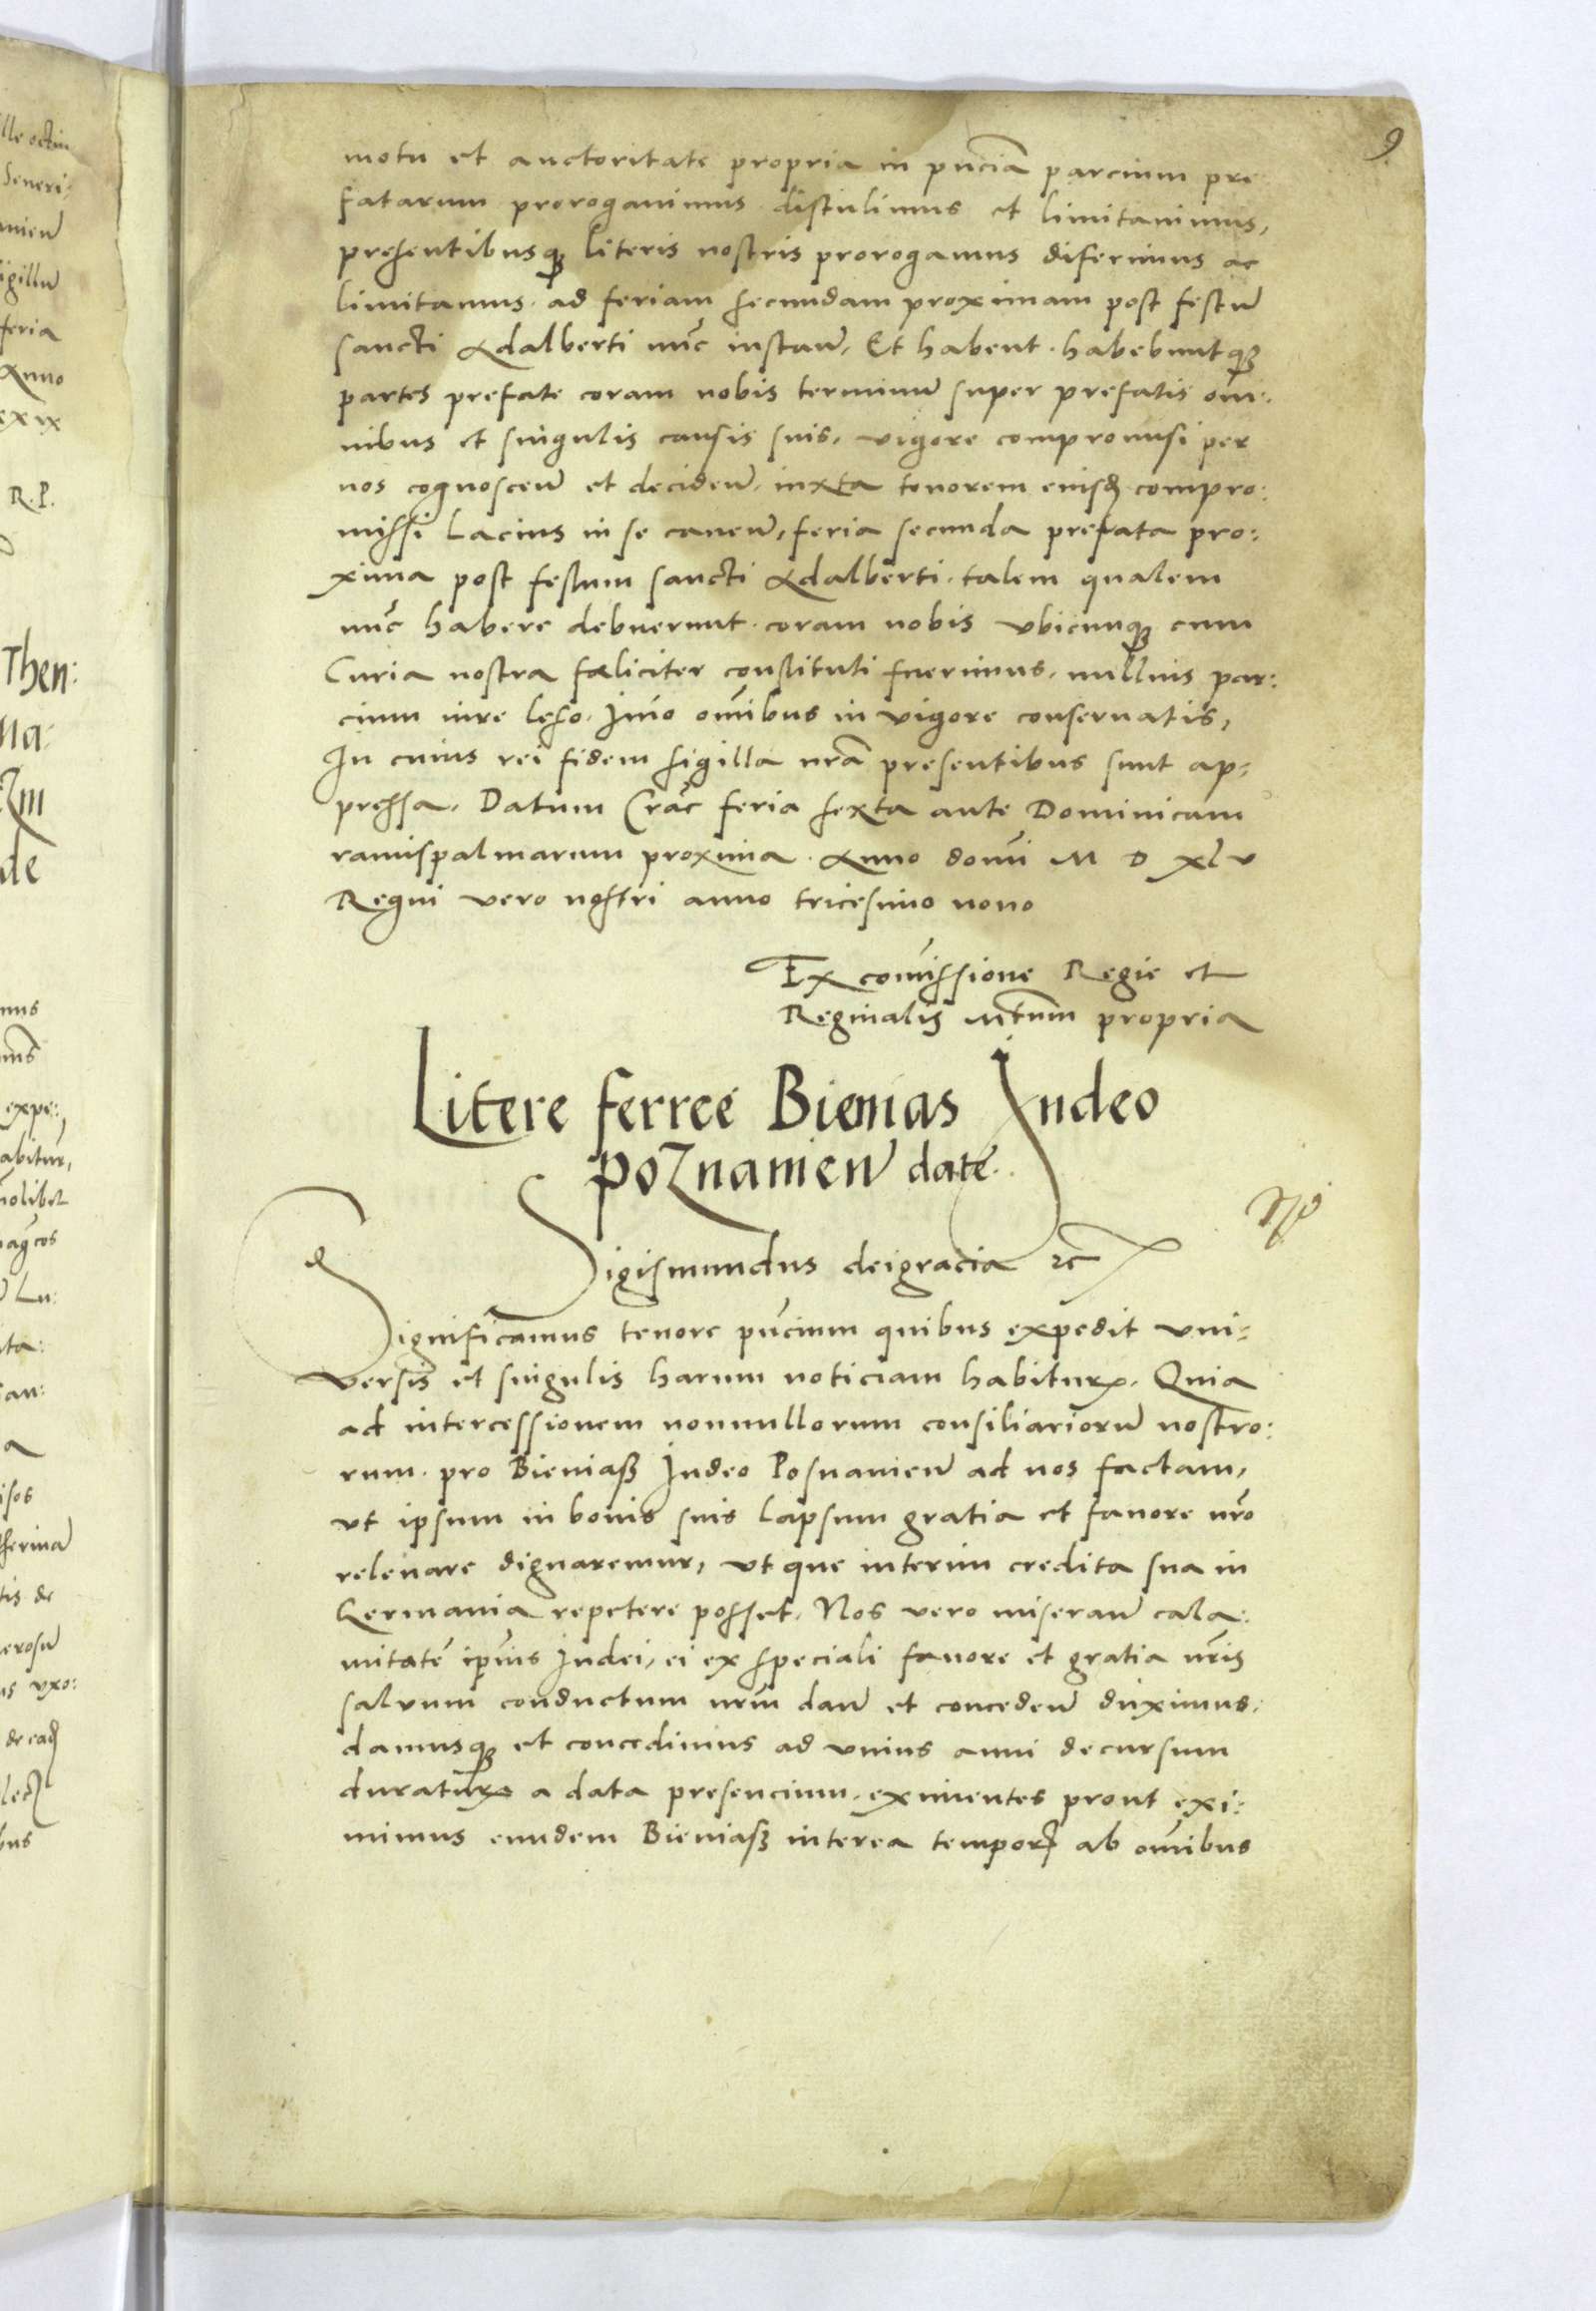 9
motu et auctoritate propria in pn̄ciā parcium pre
fatarum prorogauimus distulimus et limitauimus,
presentibusq3 literis nostris prorogamus diferimus ac
limitamus. ad feriam secundam proximam post festū
sancti Adalberti nūc instañ. Et habent. habebuntq3
partes prefate coram nobis terminū super prefatis om̄:
nibus et singulis causis suis, vigore compromisi per
nos cognosceñ et decideñ. iuxta tenorem eiusd compro:
missi Lacius in se caneñ, feria secunda prefata pro:
xima post festum sancti Adalberti. talem qualem
nūc habere debuerunt. coram nobis vbicunq3 cum
Curia nostra fæliciter constituti fuerimus. nullius par:
cium iure leso. Imo om̄ibus in vigore conseruatis,
In cuius rei fidem sigilla nr̄a presentibus sunt ap:
pressa. Datum Crac̄ feria sexta ante Dominicam
ramispalmarum proxima. Anno domī M D XLV
Regni vero nostri anno tricesimo nono
Ex com̄issione Regie et
Reginalis Mtum̄ propria
Litere ferree Bienias Iudeo
poznanieñ date.
Sigismundus deigracia rc̄
Significamus tenore pn̄cium quibus expedit vni:
versis et singulis harum noticiam habiturꝭ. Quia
ad intercessionem nonnullorum consiliariorū nostro:
rum. pro Bieniaß Iudeo Posnanieñ ad nos factam,
vt ipsum in bonis suis lapsum gratia et fauore nr̄o
releuare dignaremur, vt que interim credita sua in
Germania repetere posset. Nos vero miserañ cala:
mitatē ip̄ius Iudei, ei ex speciali fauore et gratia nr̄is
saluum conductum nr̄m dañ et concedeñ duximus.
damusq3 et concedimus ad vnius anni decursum
duraturꝭ a data presencium. eximentes prout exi:
mimus eundem Bieniaß interea temporꝭ ab om̄ibus